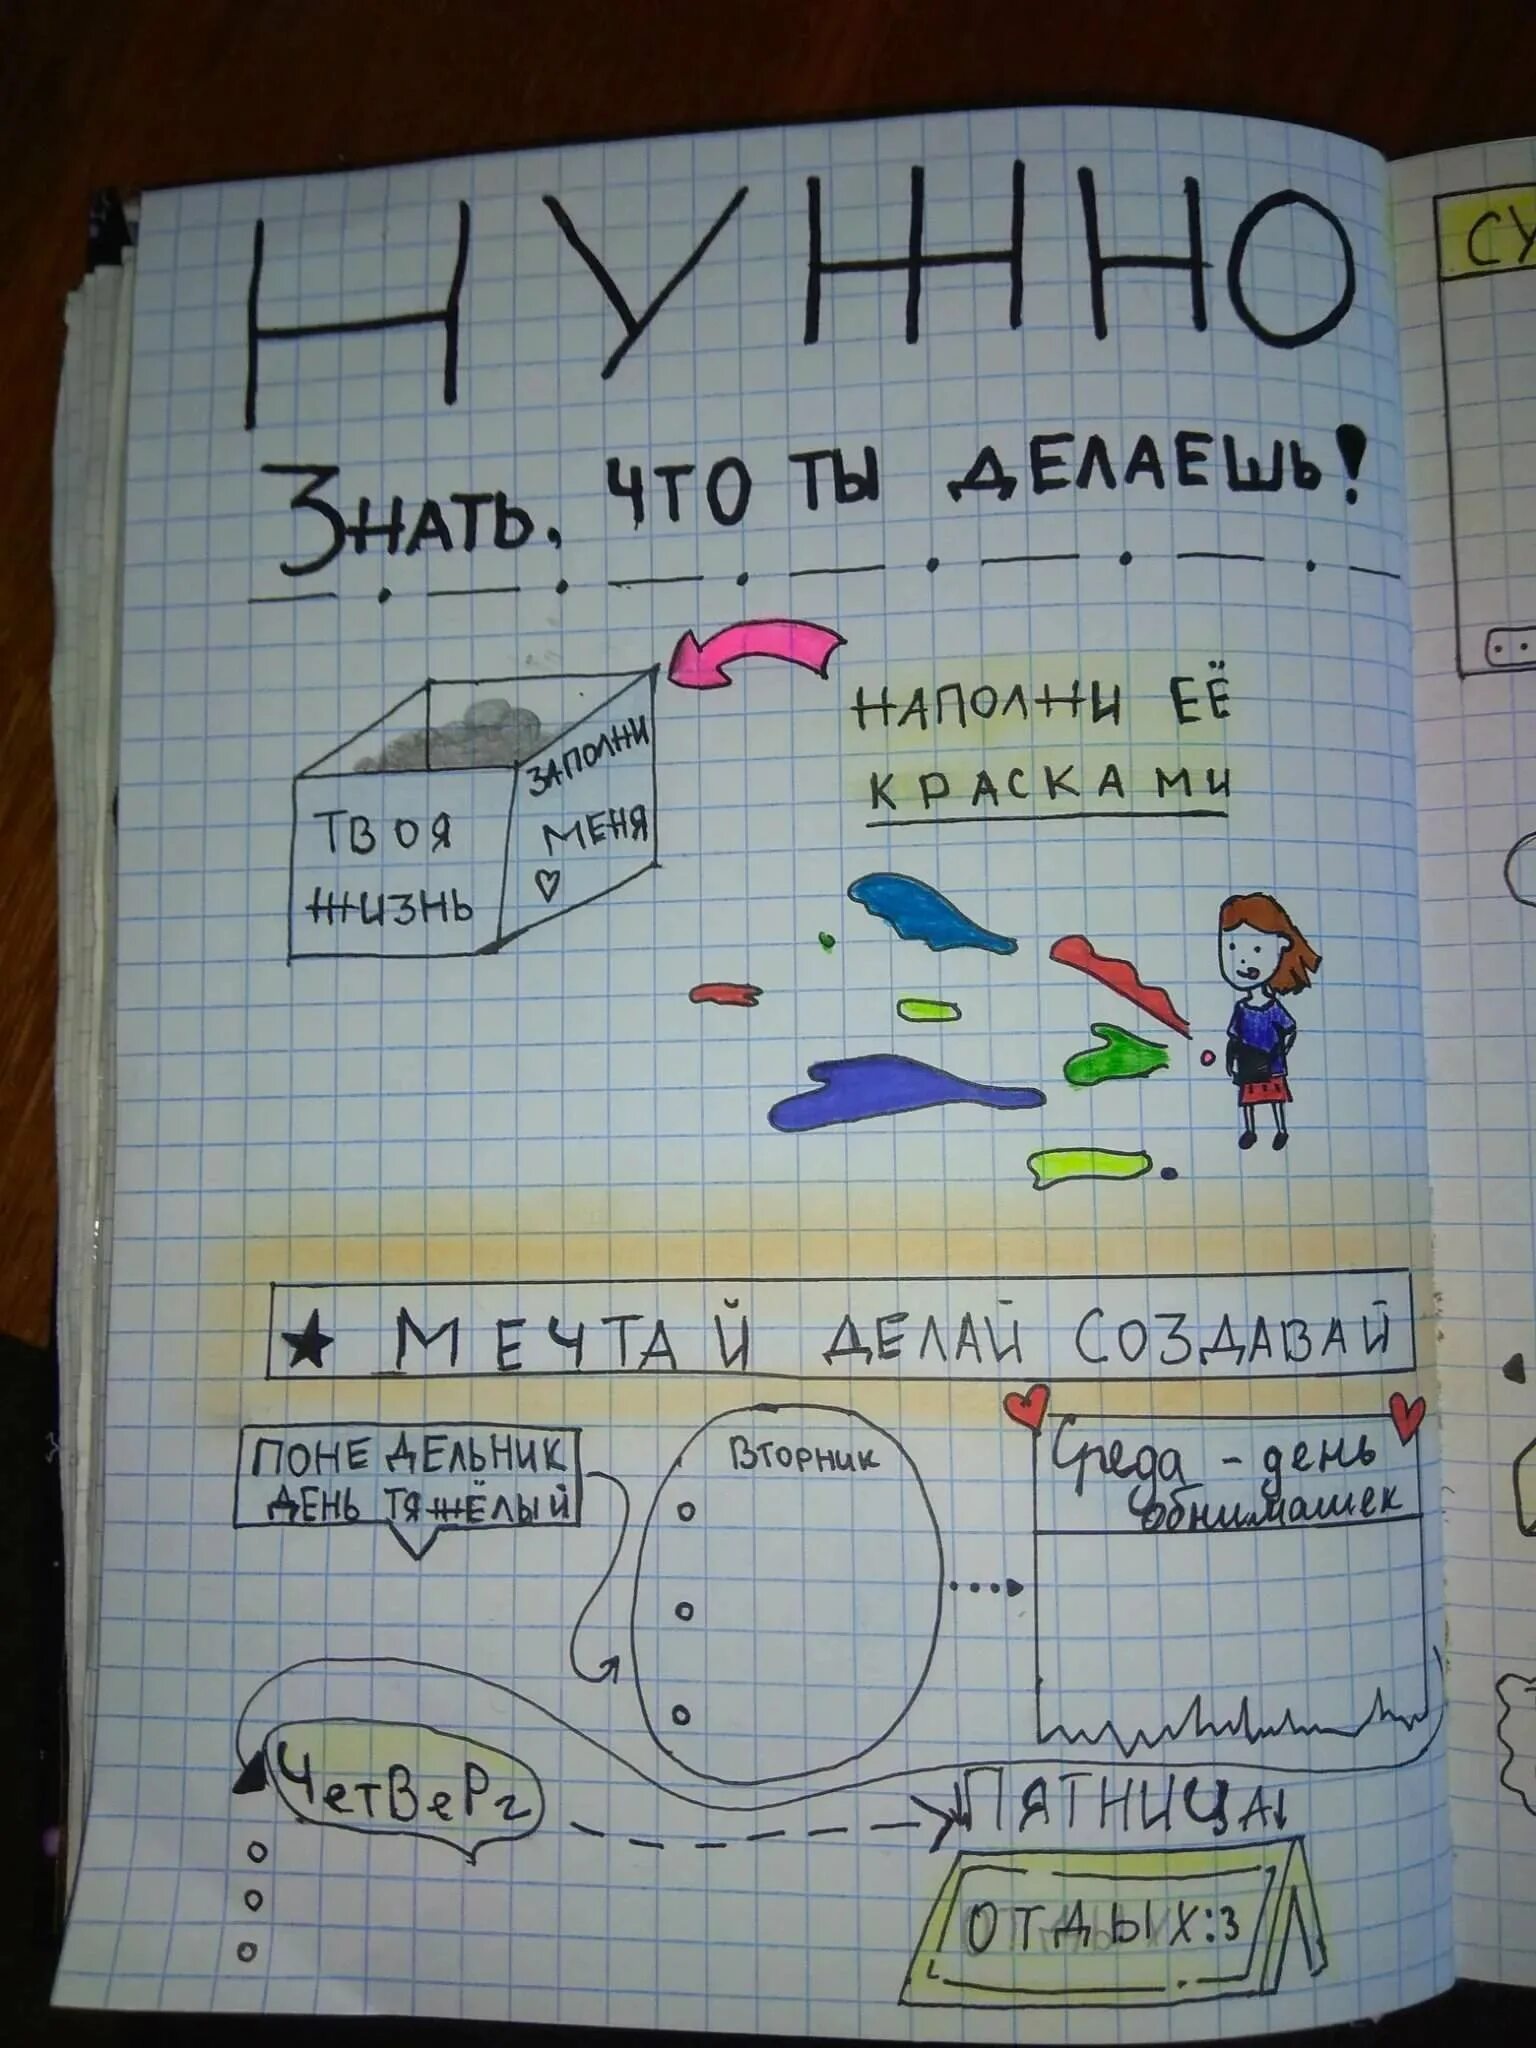 НУЖНО
Знать, что ты делаешь!
НАПОЛНИ ЕЁ
КРАСКАМИ
ТВОЯ
ЖИЗНЬ
ЗАПОЛНИ
МЕНЯ
МЕЧТАЙ ДЕЛАЙ СОЗДАВАЙ
ПОНЕДЕЛЬНИК
ДЕНЬ ТЯЖЁЛЫЙ
Вторник
Среда - день
обнимашек
ЧетВеРг
ПЯТНИЦА
ОТДЫХ:3
СУ